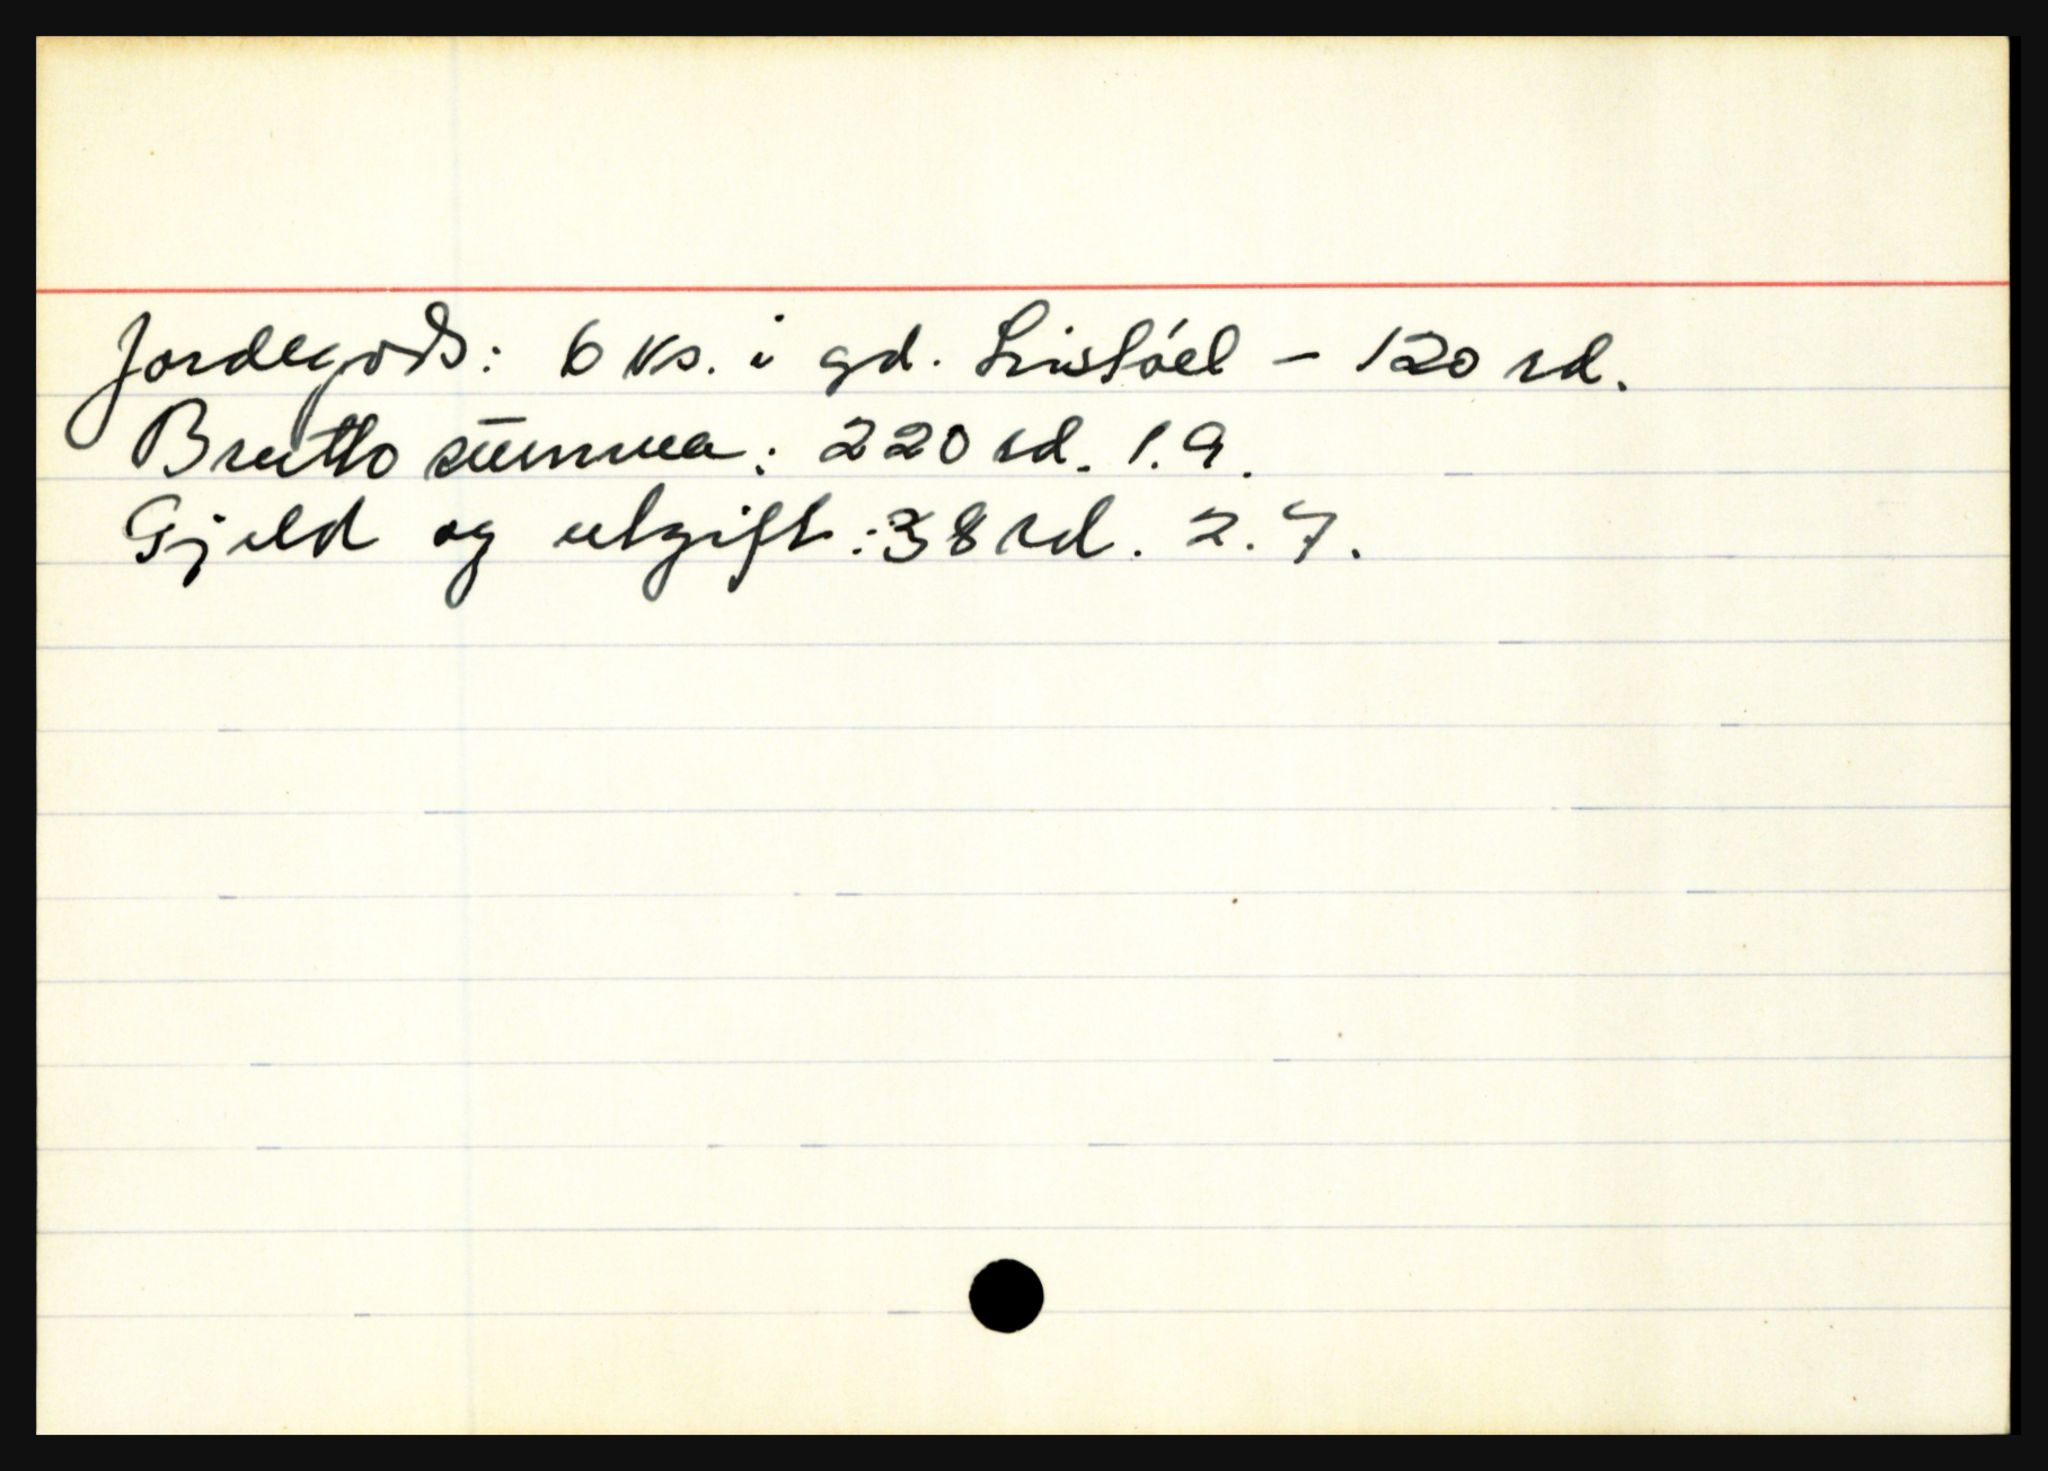 Jordegods: 6 ks. i gd. Linstöel – 120 rd.
Brutto summa: 220 rd. 1.9.
Gjeld og utgift: 38 rd. 2.7.